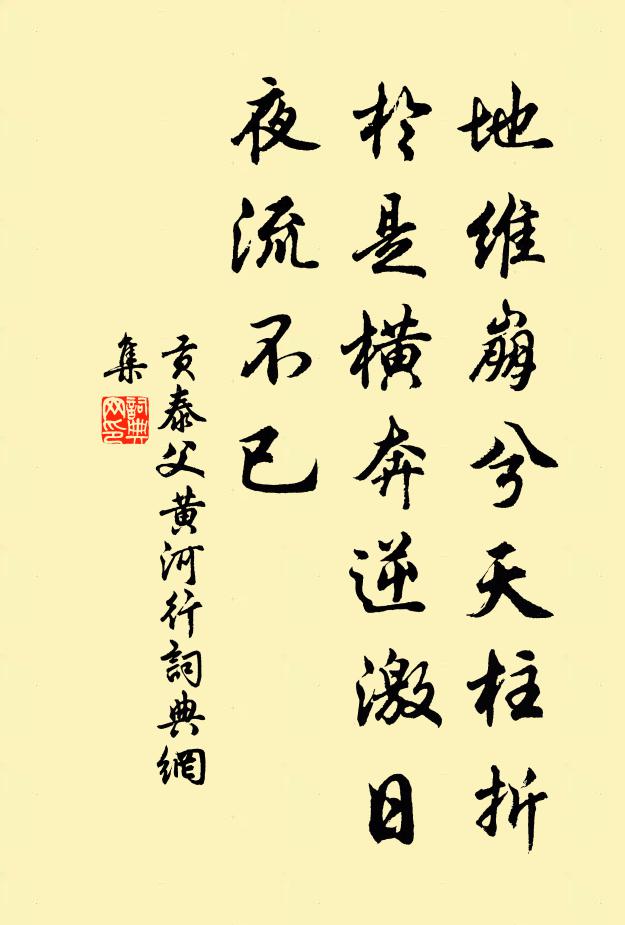 地維崩兮天柱折
於是橫奔逆激日
夜流不已
貢泰父黄河行詞典網
集
詞典
网印